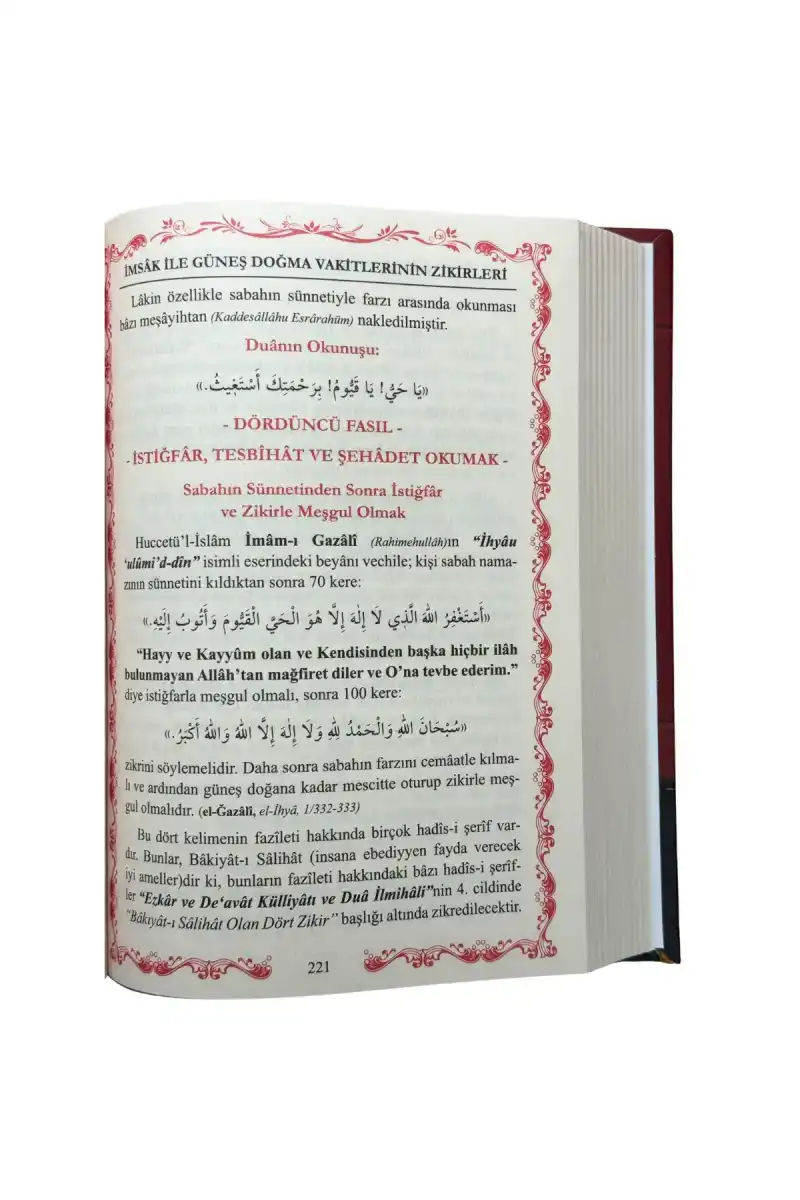 İMSÂK İLE GÜNEŞ DOĞMA VAKİTLERİNİN ZİKİRLERİ
Lâkin özellikle sabahın sünnetiyle farzı arasında okunması
bâzı meşâyihtan (Kaddesâllâhu Esrârahüm) nakledilmiştir.
Duânın Okunuşu:
«يَا حَيُّ! يَا قَيُّومُ! بِرَحْمَتِكَ أَسْتَغِيثُ.»
- DÖRDÜNCÜ FASIL -
- İSTİĞFÂR, TESBÎHÂT VE ŞEHÂDET OKUMAK -
Sabahın Sünnetinden Sonra İstiğfâr
ve Zikirle Meşgul Olmak
Huccetü’l-İslâm İmâm-ı Gazâlî (Rahimehullâh)ın “İhyâu
‘ulûmi’d-dîn” isimli eserindeki beyânı vechile; kişi sabah nama-
zının sünnetini kıldıktan sonra 70 kere:
«أَسْتَغْفِرُ اللهَ الَّذِي لَا إِلٰهَ إِلَّا هُوَ الْحَيَّ الْقَيُّومَ وَأَتُوبُ إِلَيْهِ.»
“Hayy ve Kayyûm olan ve Kendisinden başka hiçbir ilâh
bulunmayan Allâh’tan mağfiret diler ve O’na tevbe ederim.”
diye istiğfarla meşgul olmalı, sonra 100 kere:
«سُبْحَانَ اللهِ وَالْحَمْدُ لِلهِ وَلَا إِلٰهَ إِلَّا اللهُ وَاللهُ أَكْبَرُ.»
zikrini söylemelidir. Daha sonra sabahın farzını cemâatle kılma-
lı ve ardından güneş doğana kadar mescitte oturup zikirle meş-
gul olmalıdır. (el-Ğazâlî, el-İhyâ, 1/332-333)
Bu dört kelimenin fazîleti hakkında birçok hadîs-i şerîf var-
dır. Bunlar, Bâkiyât-ı Sâlihât (insana ebediyyen fayda verecek
iyi ameller)dir ki, bunların fazîleti hakkındaki bâzı hadîs-i şerîf-
ler “Ezkâr ve De‘avât Külliyâtı ve Duâ İlmihâli”nin 4. cildinde
“Bâkıyât-ı Sâlihât Olan Dört Zikir” başlığı altında zikredilecektir.
221